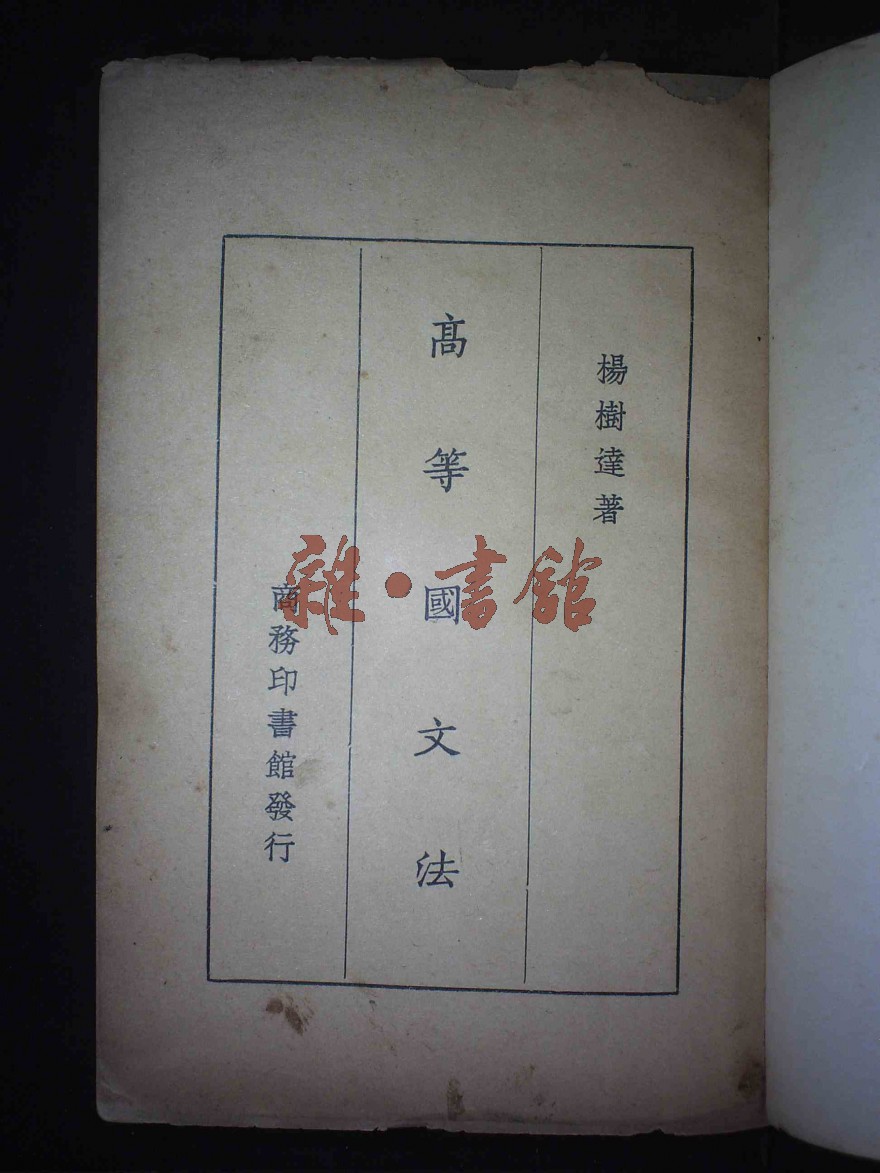 楊樹達著
高等國文法
商務印書館發行
雜·書館